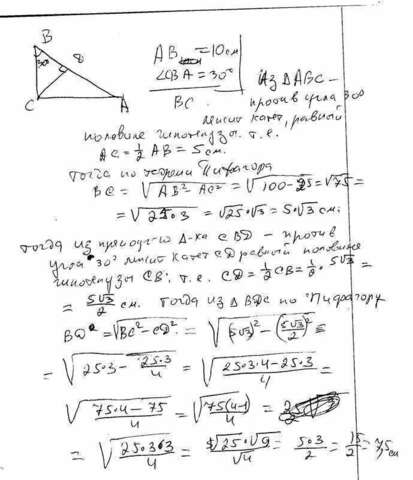 B
30°
8
C
A
AB = 10 см
∠CBA = 30°
BC
Из △ABC –
против угла 30°
лежит катет, равный
половине гипотенузы. т.е.
AC = 1/2 AB = 5 см.
Тогда по теореме Пифагора
BC = √AB² AC² = √100-25 = √75 =
= √25·3 = √25·√3 = 5√3 см.
Тогда из прямоуг-го △-ка CBD – против
угла 30° лежит катет CD равный половине
гипотенузы CB; т.е. CD = 1/2 CB = 1/2 · 5√3 =
= 5√3/2 см. Тогда из △ BDC по Пифагору
BD² = √BC² - CD² = √(5√3)² - (5√3/2)² =
= √25·3 - 25·3/4 = √25·3·4-25·3/4 =
√75·4-75/4 = √75(4-1)/4 =
= √25·3·3/4 = √25·√9/√4 = 5·3/2 = 15/2 = 7,5 см